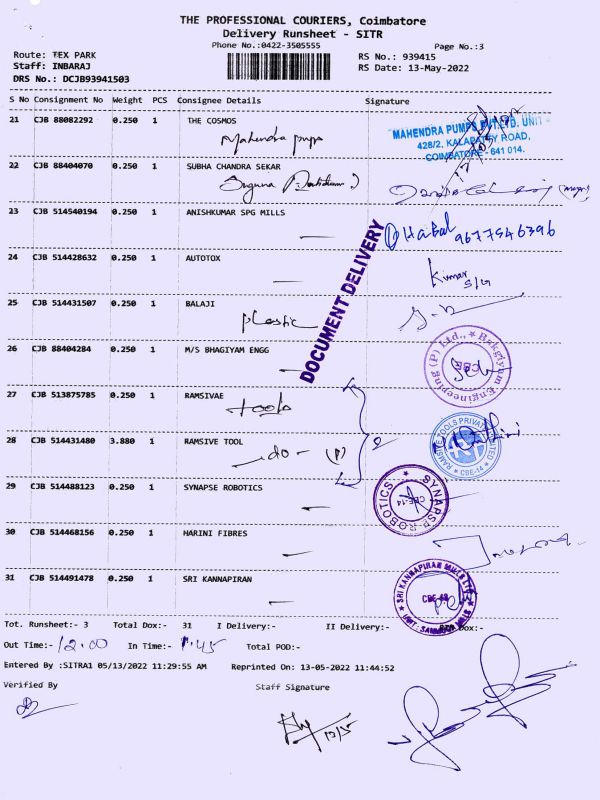 THE PROFESSIONAL COURIERS, Coimbatore
Delivery Runsheet - SITR
Phone No.:0422-3505555
Page No.:3
Route: TEX PARK
RS No.: 939415
Staff: INBARAJ
RS Date: 13-May-2022
DRS No.: DCJB93941503
S No Consignment No Weight PCS Consignee Details Signature
21 CJB 88082292 0.250 1 THE COSMOS
Mahendra pumps
MAHENDRA PUMPS PVT.LTD. UNIT
428/2, KALAPATTY ROAD,
COIMBATORE - 641 014.
22 CJB 88404070 0.250 1 SUBHA CHANDRA SEKAR
Suguna
23 CJB 514540194 0.250 1 ANISHKUMAR SPG MILLS
9677546396
24 CJB 514428632 0.250 1 AUTOTOX
Kumar
S/G
25 CJB 514431507 0.250 1 BALAJI
plastic
DOCUMENT DELIVERY
26 CJB 88404284 0.250 1 M/S BHAGIYAM ENGG
Bakgiyam Engineering (P) Ltd.,
CBE
27 CJB 513875785 0.250 1 RAMSIVAE
tools
28 CJB 514431480 3.880 1 RAMSIVE TOOL
-do- (P)
RAMSIVE TOOLS PRIVATE LIMITED
CBE-14
29 CJB 514488123 0.250 1 SYNAPSE ROBOTICS
SYNAPSE ROBOTICS
CBE-14
30 CJB 514468156 0.250 1 HARINI FIBRES
31 CJB 514491478 0.250 1 SRI KANNAPIRAN
SRI KANNAPIRAN MILLS LTD
Tot. Runsheet:- 3 Total Dox:- 31 I Delivery:- II Delivery:- Dox:-
Out Time:- 12.00 In Time:- 1.45 Total POD:-
Entered By :SITRA1 05/13/2022 11:29:55 AM Reprinted On: 13-05-2022 11:44:52
Verified By Staff Signature
13/5